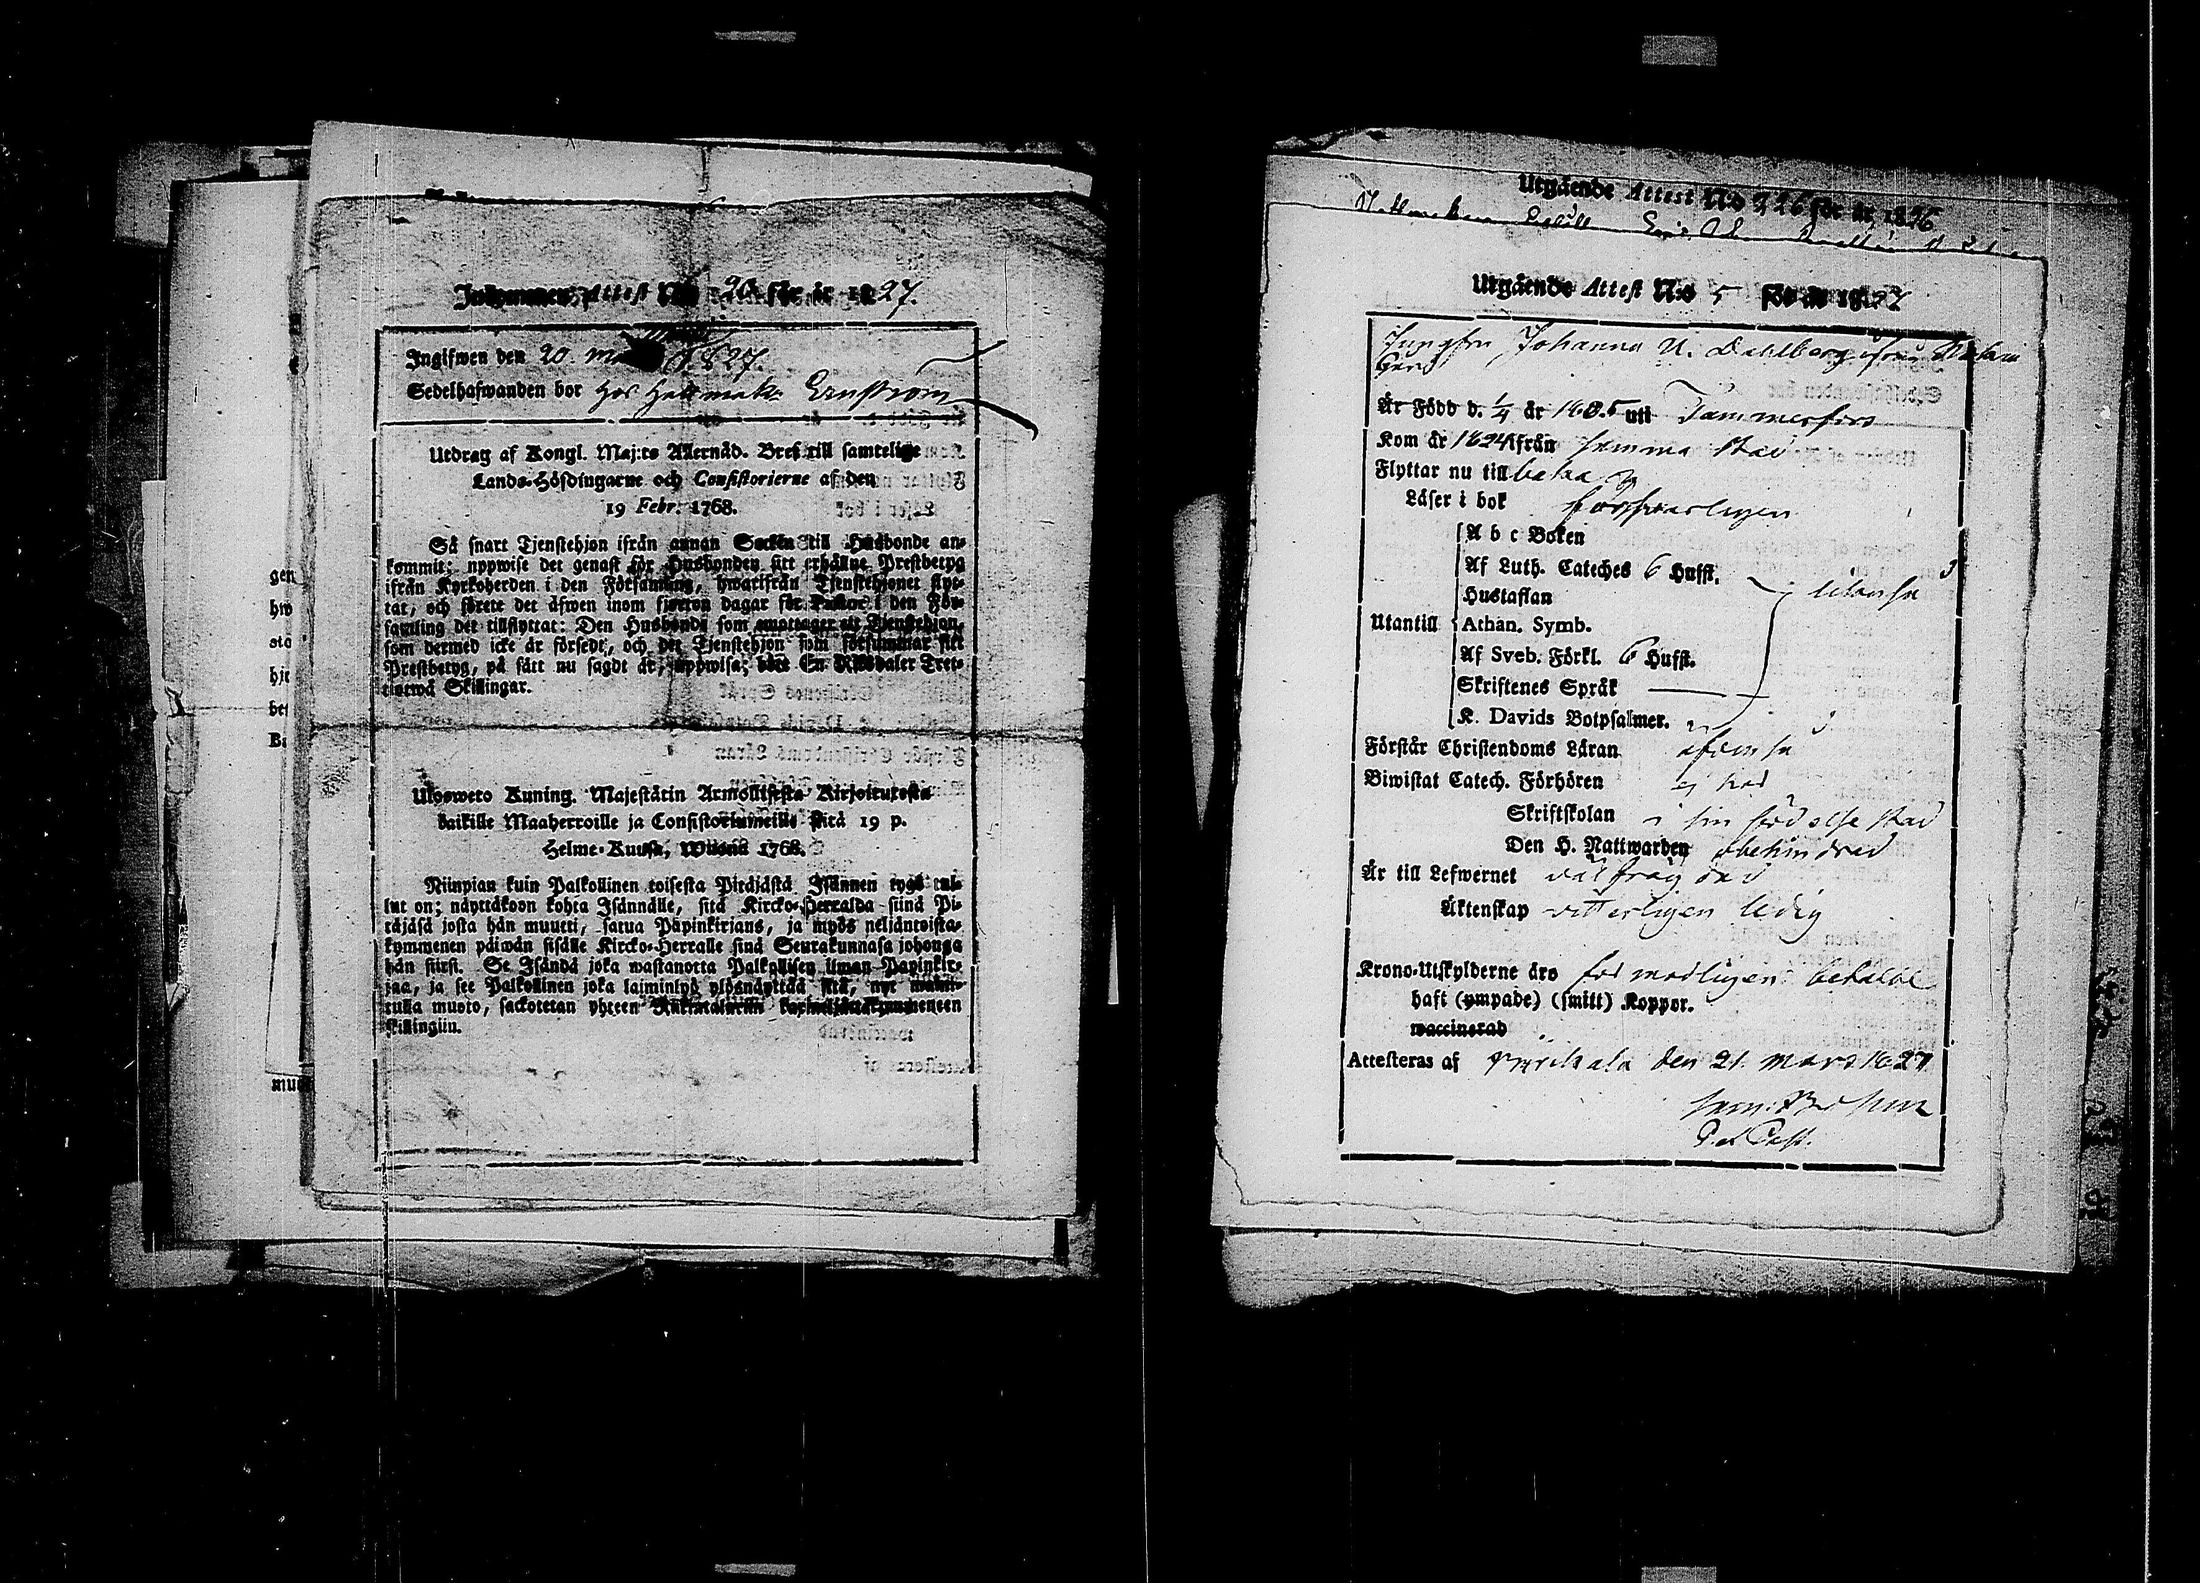 gen
hw
sta
hjt
bef
B.
mu
Inkommen Attest N:o 20 för år 1827.
Ingifwen den 20 1827.
Sedelhafwanden bor hos Hattmak. Ernström
Utdrag af Kongl. Maj:ts Allernåd. Bref till samtelige
Lands-Höfdingarne och Consistorierne af den
19 Febr. 1768.
Så snart Tjenstehjon ifrån annan Socken till Husbonde an-
kommit; uppwise det genast för Husbonden sitt erhållne Prestbetyg
ifrån Kyrkoherden i den Församling, hwarifrån Tjenstehjonet flyt-
tat, och förete det äfwen inom fjorton dagar för Pastor i den För-
samling det tillflyttat: Den Husbonde som emottager ett Tjenstehjon,
som dermed icke är försedt, och det Tjenstehjon som försummar sitt
Prestbetyg, på sätt nu sagdt är, uppwisa; böte En Riksdaler Tret-
tiotwå Skillingar.
Ulosweto Kuning. Majestätin Armollisesta Kirjoituxesta
kaikille Maaherroille ja Consistoriumeille sitä 19 p.
Helme-Kuusa, Wuona 1768.
Niinpian kuin Palkollinen toisesta Pitäjästä Isännen tygö tul-
lut on; näyttäkoon kohta Isännälle, sitä Kircko-Herralda siinä Pi-
täjäsä josta hän muutti, saatua Papinkirjans, ja myös neljäntoista-
kymmenen päiwän sisälle Kircko-Herralle sinä Seurakunnasa johonga
hän siirsi. Se Isändä joka wastanotta Palkollisen ilman Papinkir-
jaa, ja see Palkollinen joka laiminlyö ylösnäyttää sitä, nyt
tulla muoto, sackotetan yhteen Rikintaleriin kaxineljättäkymmeneen
skillingiin.
Utgående Attest N:o 226 för år 1826
Utgående Attest N:o 5 för år 1827
Jungfru Johanna U. Dahlberg ifrån
Är Född d. 1/4 år 1805 uti Tammerfors
Kom år 1824 ifrån samma stad
Flyttar nu tillbaka
Läser i bok försvarligen
Utantill
A b c Boken
Af Luth. Cateches 6 Hufst.
Hustaflan
Athan. Symb.
Af Sveb. Förkl. 6 Hufst.
Skriftenes Språk
K. Davids Botpsalmer.
Förstår Christendoms Läran
Biwistat Catech. Förhören
Skriftskolan i sin födelse stad
Den H. Nattwarden obehindrad
Är till Lefwernet välfrägdad
Äktenskap vitterligen ledig
Krono-Utskylderne äro förmodligen betalde
haft (ympade) (smitt) Koppor.
waccinerad
Attesteras af Pirkkala den 21. Mars 1827